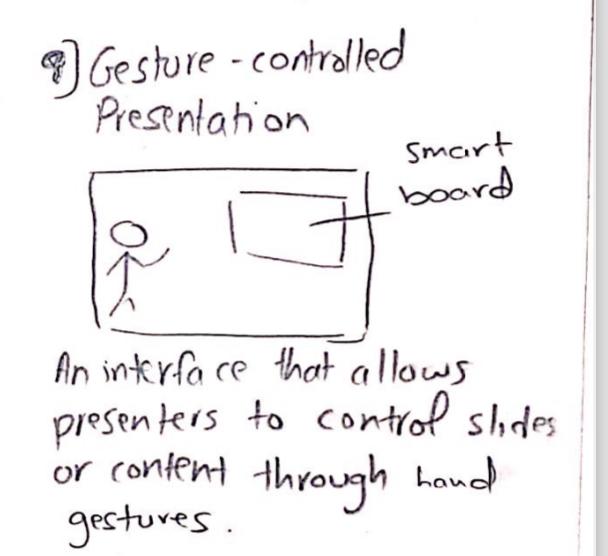 Gesture-controlled
Presentation
smart
board
An interface that allows
presenters to control slides
or content through hand
gestures.